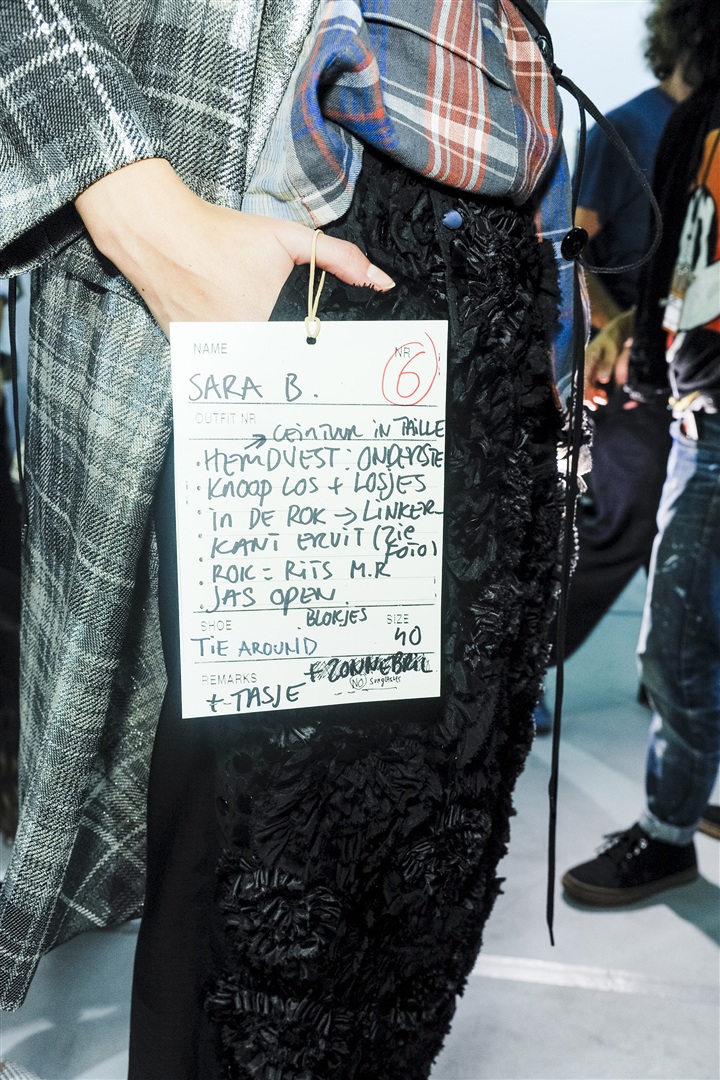 NAME
NR
SARA B.
6
OUTFIT NR
→ CEINTUUR IN TAILLE
• HEMDVEST: ONDERSTE
• KNOOP LOS + LOSJES
• IN DE ROK → LINKER
• KANT ERUIT (ZIE
FOTO)
• ROK = RITS M.R
• JAS OPEN
BLOKJES
SHOE
SIZE
TIE AROUND
40
REMARKS
+ ZONNEBRIL
+ TASJE
NO sunglasses